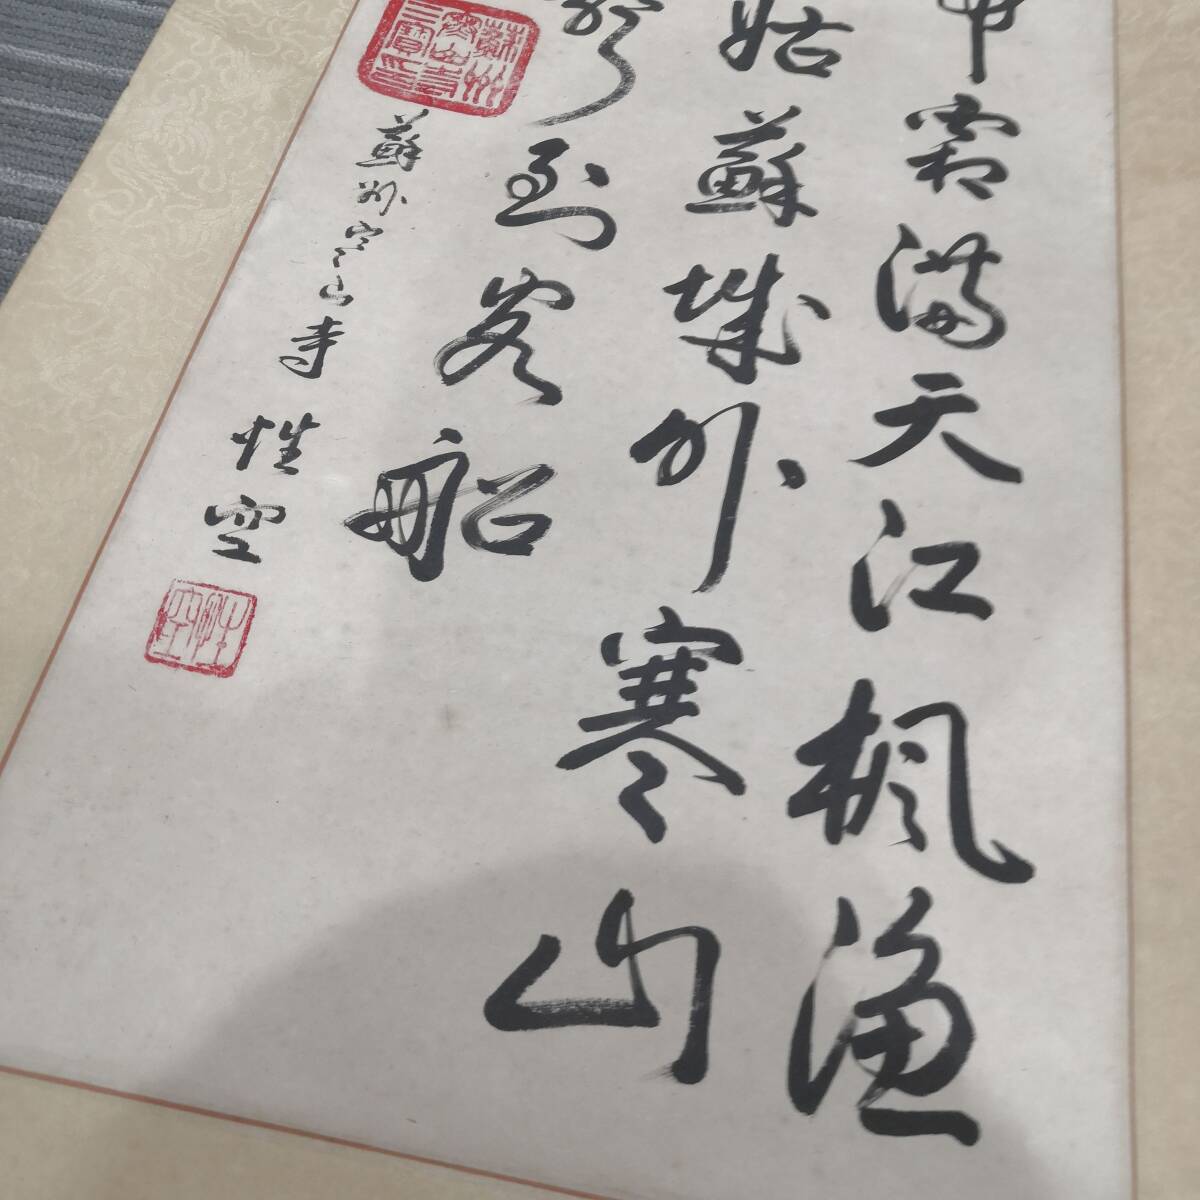 啼霜滿天江楓漁
姑蘇城外寒山
聲到客船
蘇州寒山寺 性空
蘇州寒山寺三寶印
性空